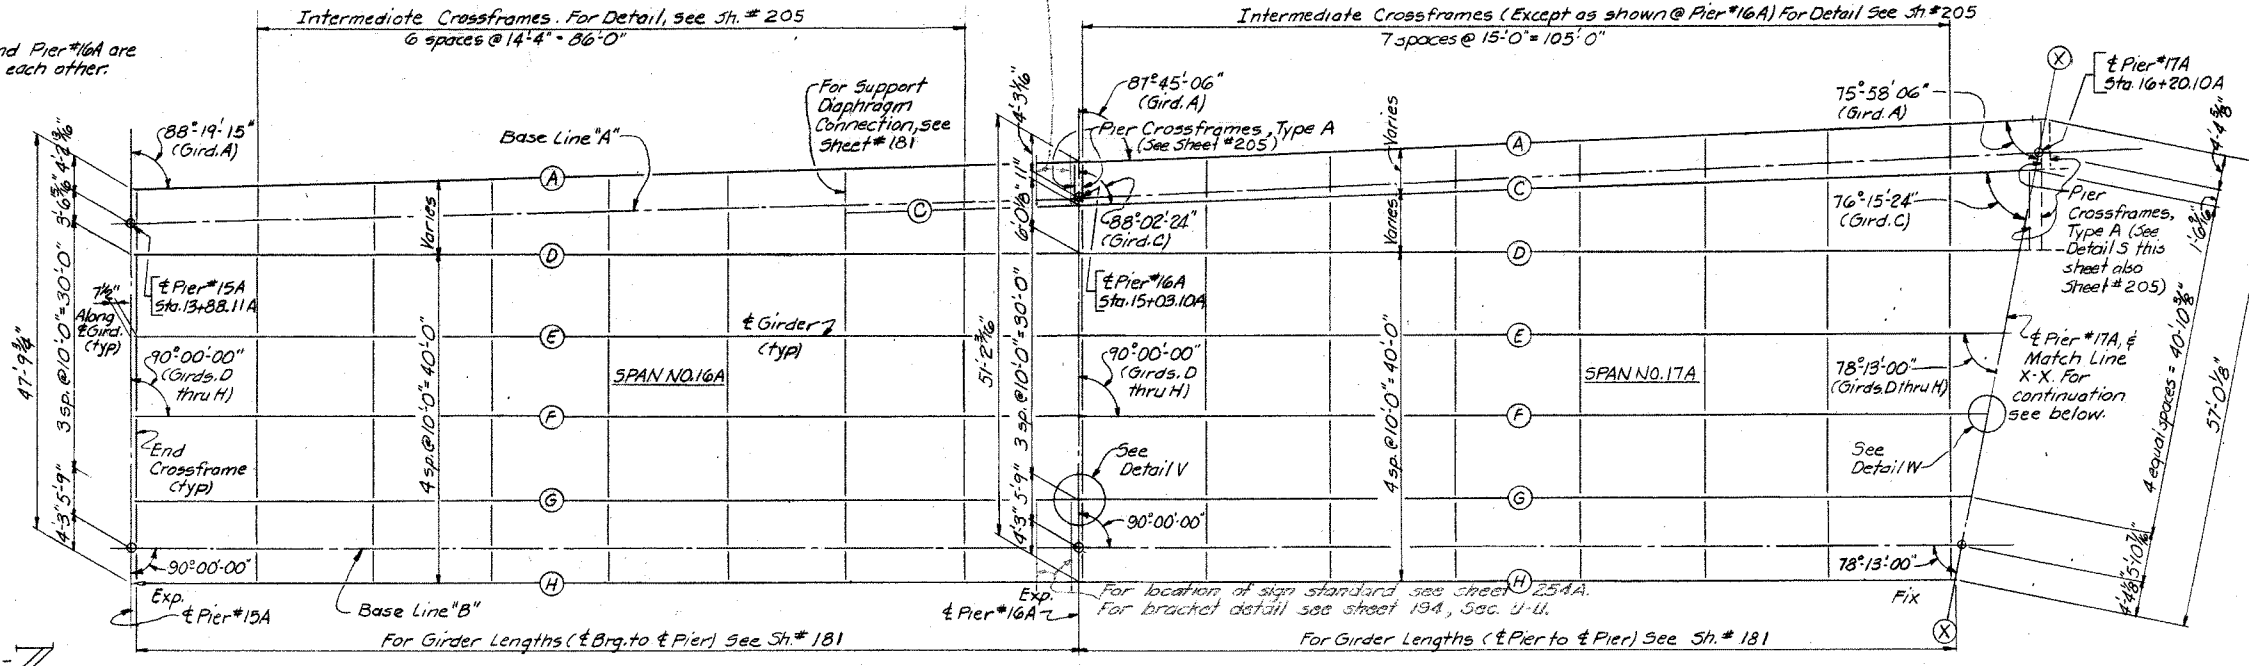 Intermediate Crossframes. For Detail, see Sh. # 205
6 spaces @ 14'-4" = 86'-0"
Intermediate Crossframes (Except as shown @ Pier #16A) For Detail See Sh. #205
7 spaces @ 15'-0" = 105'-0"
nd Pier #16A are
each other.
88°-19'-15"
(Gird. A)
Base Line "A"
For Support
Diaphragm
Connection, see
Sheet # 181
87°-45'-06"
(Gird. A)
Pier Crossframes, Type A
(See Sheet #205)
Varies
75°-58'-06"
(Gird. A)
X
℄ Pier #17A
Sta. 16+20.10A
4'-4 5/8"
4'-2 13/16"
3'-6 5/16"
3 sp. @ 10'-0" = 30'-0"
5'-9"
4'-3"
47'-9 3/4"
7 1/2"
Along
℄ Gird.
(typ)
℄ Pier #15A
Sta. 13+88.11A
90°00'-00"
(Girds. D
thru H)
End
Crossframe
(typ)
90°00'-00"
Exp.
℄ Pier #15A
Base Line "B"
Varies
4 sp. @ 10'-0" = 40'-0"
A
C
D
E
F
G
H
℄ Girder
(typ)
SPAN NO. 16A
4'-3 1/16"
11"
6'-0 1/8"
3 sp. @ 10'-0" = 30'-0"
5'-9"
4'-3"
51'-2 3/16"
88°-02'-24"
(Gird. C)
℄ Pier #16A
Sta. 15+03.10A
90°00'-00"
(Girds. D
thru H)
See
Detail V
90°00'-00"
Exp.
℄ Pier #16A
For location of sign standard see sheet 254A.
For bracket detail see sheet 194, Sec. U-U.
Varies
4 sp. @ 10'-0" = 40'-0"
A
C
D
E
F
G
H
SPAN NO. 17A
76°-15'-24"
(Gird. C)
Pier
Crossframes,
Type A (See
Detail S this
sheet also
Sheet #205)
78°-13'-00"
(Girds. D thru H)
℄ Pier #17A, &
Match Line
X-X. For
continuation
see below.
See
Detail W
78°-13'-00"
Fix
X
1'-6 9/16"
4 equal spaces = 40'-10 3/8"
5'-10 7/16"
4'-4 1/8"
57'-0 1/8"
For Girder Lengths (℄ Brg. to ℄ Pier) See Sh. # 181
For Girder Lengths (℄ Pier to ℄ Pier) See Sh. # 181